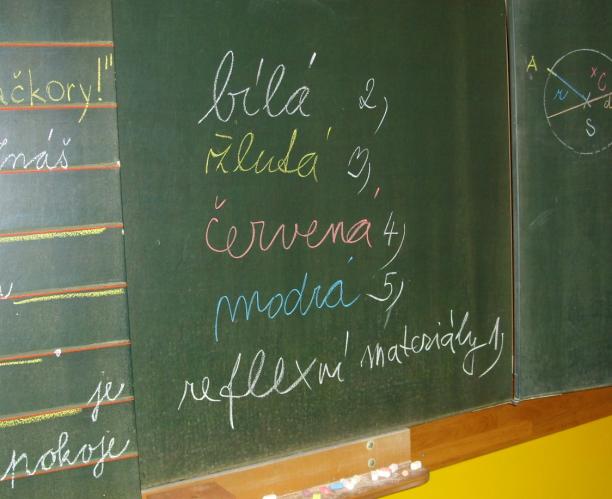 ačkory!"
náš
je
pokoje
bílá 2,
žlutá 3,
červená 4,
modrá 5,
reflexní materiály 1,
A
r
x C
d
S